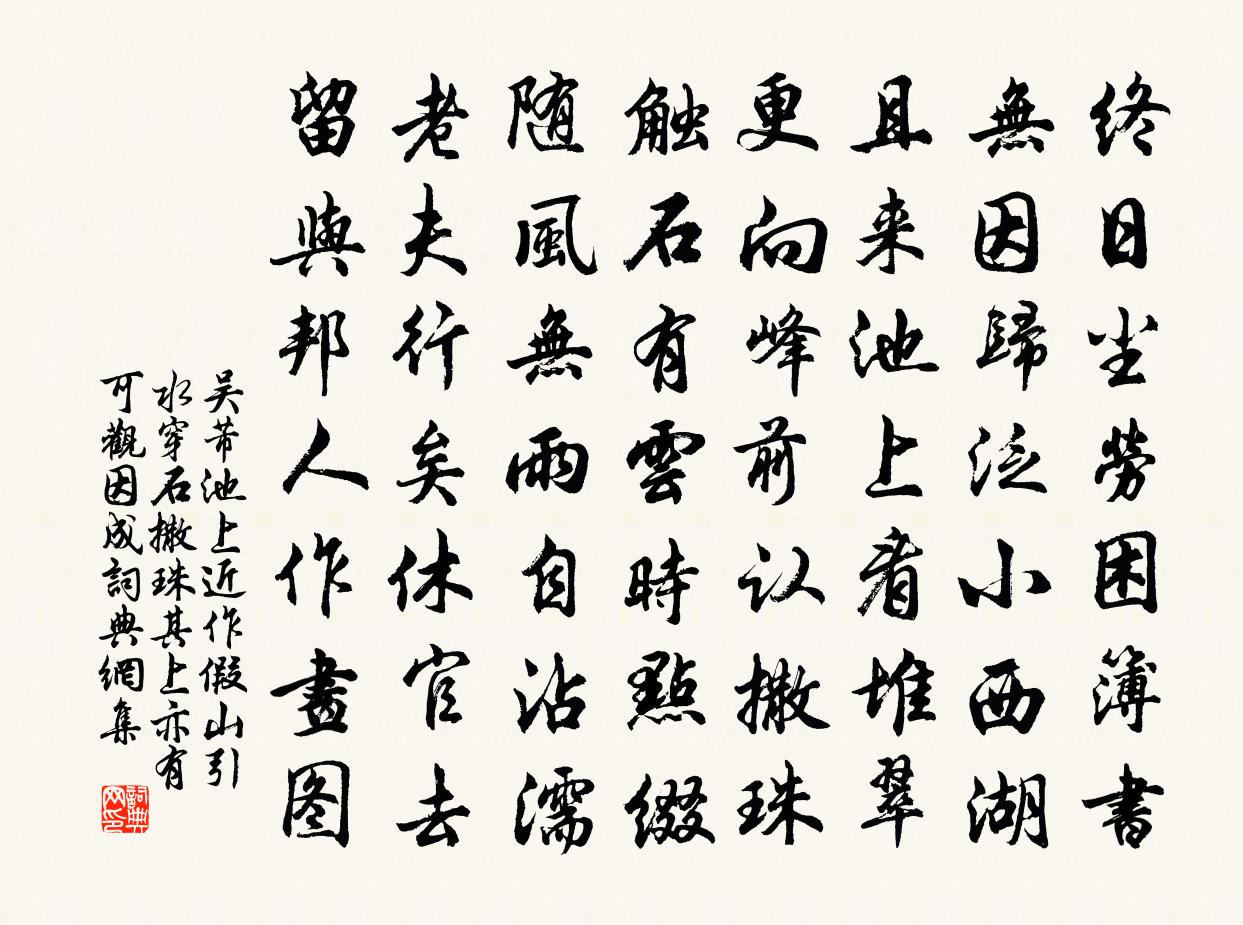 终日坐劳困簿書
無因歸泛小西湖
且来池上看堆翠
更向峰前认撒珠
触石有雲時點綴
随風無雨自沾濡
老夫行矣休官去
留與邦人作畫图
吴芾池上近作假山引
水穿石撒珠其上亦有
可觀因成詞典網集
詞典
网印